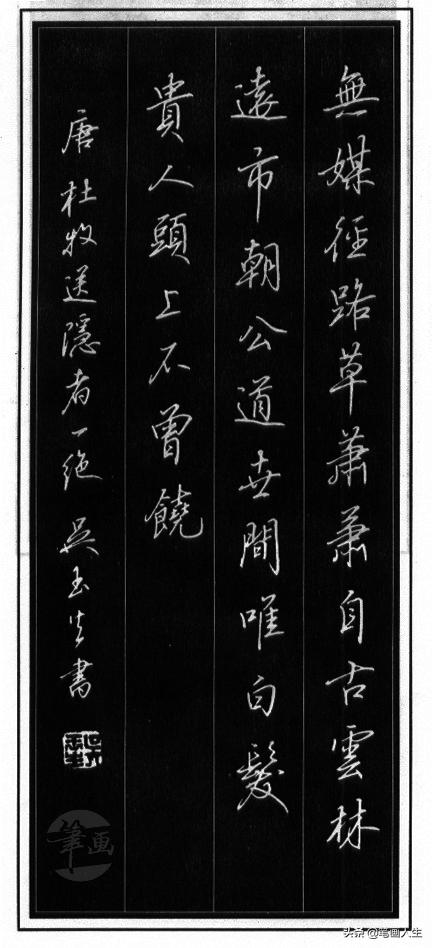 無媒徑路草蕭蕭自古雲林
遠市朝公道世間唯白髮
貴人頭上不曾饒
唐杜牧送隱者一絕 吳玉生書
筆画
头条 @笔画人生